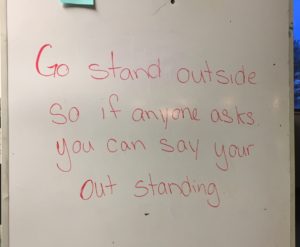 Go stand outside
so if anyone asks.
you can say your
out standing.